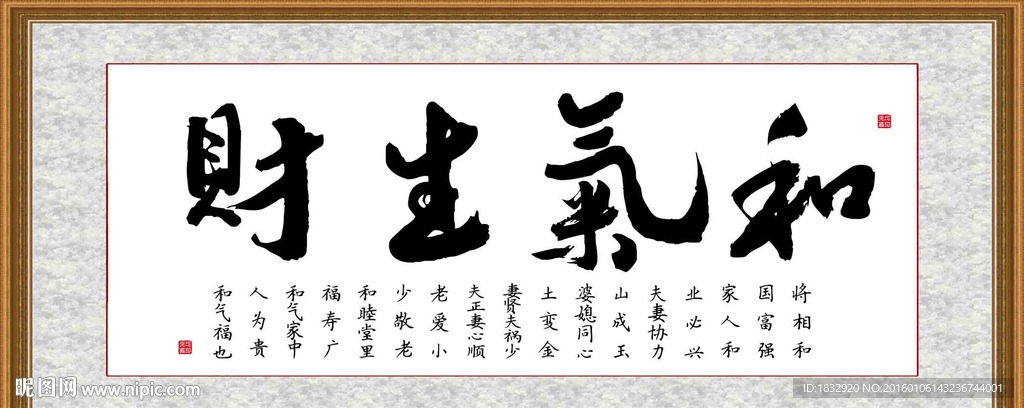 和氣生財
将相和
国富强
家人和
业必兴
夫妻协力
山成玉
婆媳同心
土变金
妻贤夫祸少
夫正妻心顺
老爱小
少敬老
和睦堂里
福寿广
和气家中
人为贵
和气福也
昵图网 www.nipic.com
ID:1832920 NO:20160106143236744001